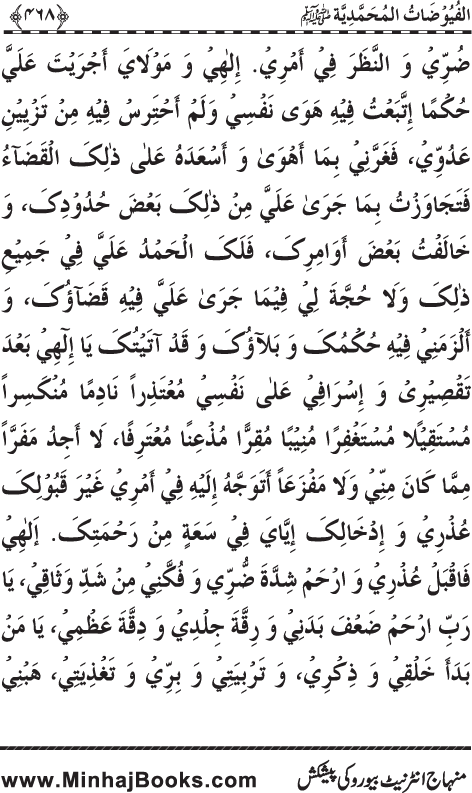 الفُيُوْضَاتُ المُحَمَّدِيَّة ﷺ ﴿۴۶۸﴾
ضُرِّيْ وَ النَّظَرَ فِيْ أَمْرِيْ. إِلٰهِيْ وَ مَوْلَايَ أَجْرَيْتَ عَلَيَّ
حُكْمًا إِتَّبَعْتُ فِيْهِ هَوَى نَفْسِيْ وَلَمْ أَحْتَرِسْ فِيْهِ مِنْ تَزْيِيْنِ
عَدُوِّيْ، فَغَرَّنِيْ بِمَا أَهْوَىٰ وَ أَسْعَدَهُ عَلىٰ ذٰلِکَ الْقَضَآءُ
فَتَجَاوَزْتُ بِمَا جَرَىٰ عَلَيَّ مِنْ ذٰلِکَ بَعْضَ حُدُوْدِکَ، وَ
خَالَفْتُ بَعْضَ أَوَامِرِکَ، فَلَکَ الْحَمْدُ عَلَيَّ فِيْ جَمِيْعِ
ذٰلِکَ وَلَا حُجَّةَ لِيْ فِيْمَا جَرَىٰ عَلَيَّ فِيْهِ قَضَآؤُکَ، وَ
أَلْزَمَنِيْ فِيْهِ حُکْمُکَ وَ بَلَآؤُکَ وَ قَدْ آتَيْتُکَ يَا إِلٰهِيْ بَعْدَ
تَقْصِيْرِيْ وَ إِسْرَافِيْ عَلىٰ نَفْسِيْ مُعْتَذِراً نَادِمًا مُنْکَسِراً
مُسْتَقِيْلًا مُسْتَغْفِرًا مُنِيْبًا مُقِرًّا مُذْعِنًا مُعْتَرِفًا، لَا أَجِدُ مَفَرًّا
مِمَّا کَانَ مِنِّيْ وَلَا مَفْزَعَاً أَتَوَجَّهُ إِلَيْهِ فِيْ أَمْرِيْ غَيْرَ قَبُوْلِکَ
عُذْرِيْ وَ إِدْخَالِکَ إِيَّايَ فِيْ سَعَةٍ مِنْ رَحْمَتِکَ. إِلٰهِيْ
فَاقْبَلْ عُذْرِيْ وَ ارْحَمْ شِدَّةَ ضُرِّيْ وَ فُکَّنِيْ مِنْ شَدِّ وَثَاقِيْ، يَا
رَبِّ ارْحَمْ ضَعْفَ بَدَنِيْ وَ رِقَّةَ جِلْدِيْ وَ دِقَّةَ عَظْمِيْ، يَا مَنْ
بَدَأَ خَلْقِيْ وَ ذِکْرِيْ، وَ تَرْبِيَتِيْ وَ بِرِّيْ وَ تَغْذِيَتِيْ، هَبْنِيْ
منہاج انٹرنیٹ بیورو کی پیشکش www.MinhajBooks.com